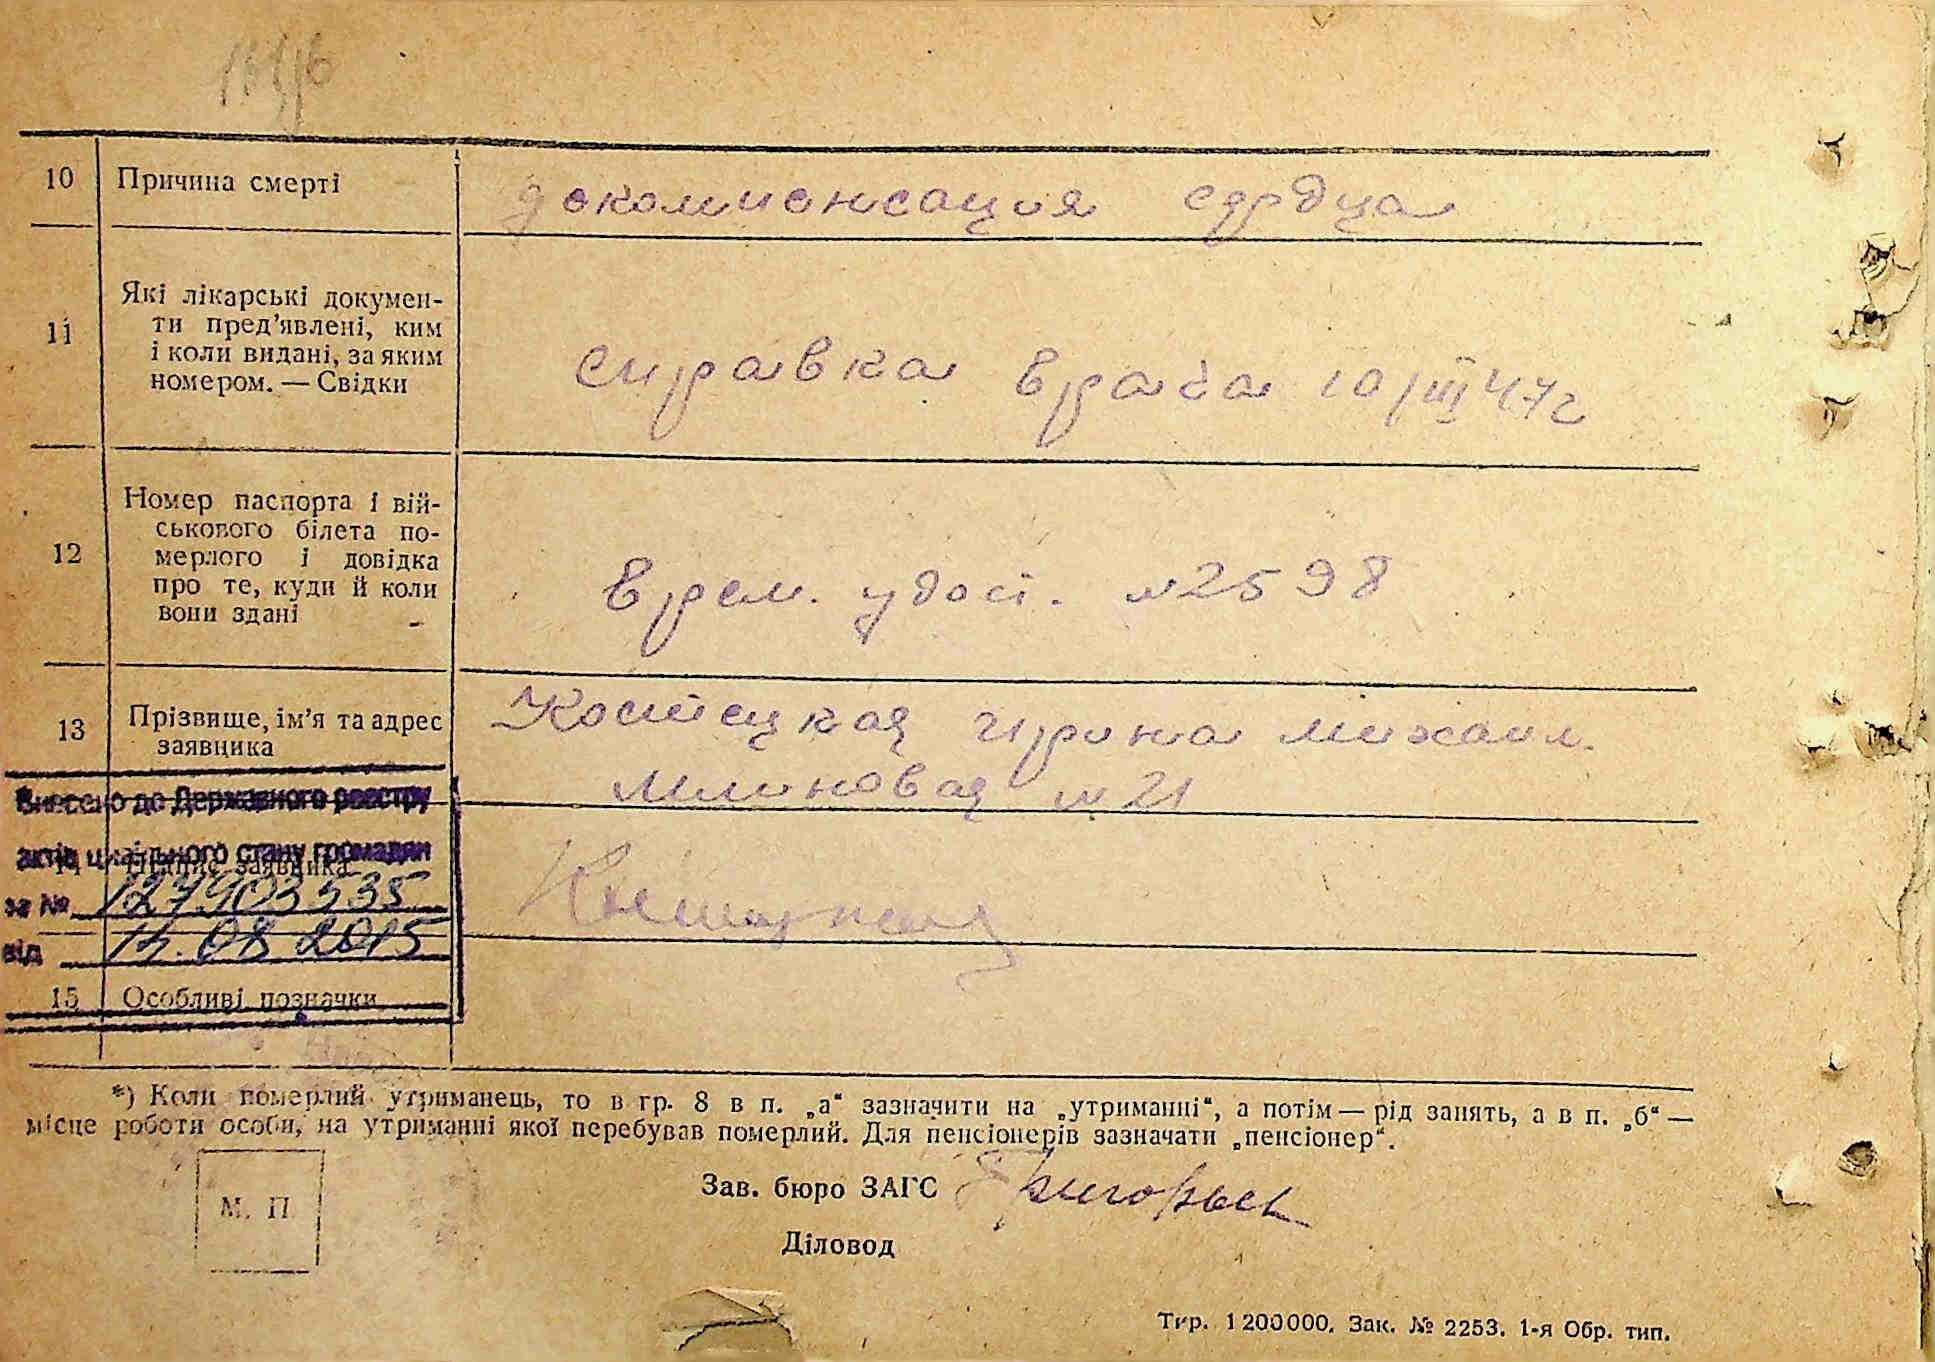 10 Причина смерті
декомпенсация сердца
11 Які лікарські докумен-
ти пред’явлені, ким
і коли видані, за яким
номером. — Свідки
справка врача 10/III 47 г
12 Номер паспорта і вій-
ськового білета по-
мерлого і довідка
про те, куди й коли
вони здані
врем. удост. №2598
13 Прізвище, ім’я та адрес
заявника
Костецкая Ирина Михаил.
Млиновая №21
Внесено до Державного реєстру
актів цивільного стану громадян
14 Підпис заявника
за №
від 2015
15 Особливі позначки
*) Коли померлий утриманець, то в гр. 8 в п. „а“ зазначити на „утриманні“, а потім — рід занять, а в п. „б“ —
місце роботи особи, на утриманні якої перебував померлий. Для пенсіонерів зазначати „пенсіонер“.
М. П.
Зав. бюро ЗАГС
Діловод
Тир. 1200000. Зак. № 2253. 1-я Обр. тип.